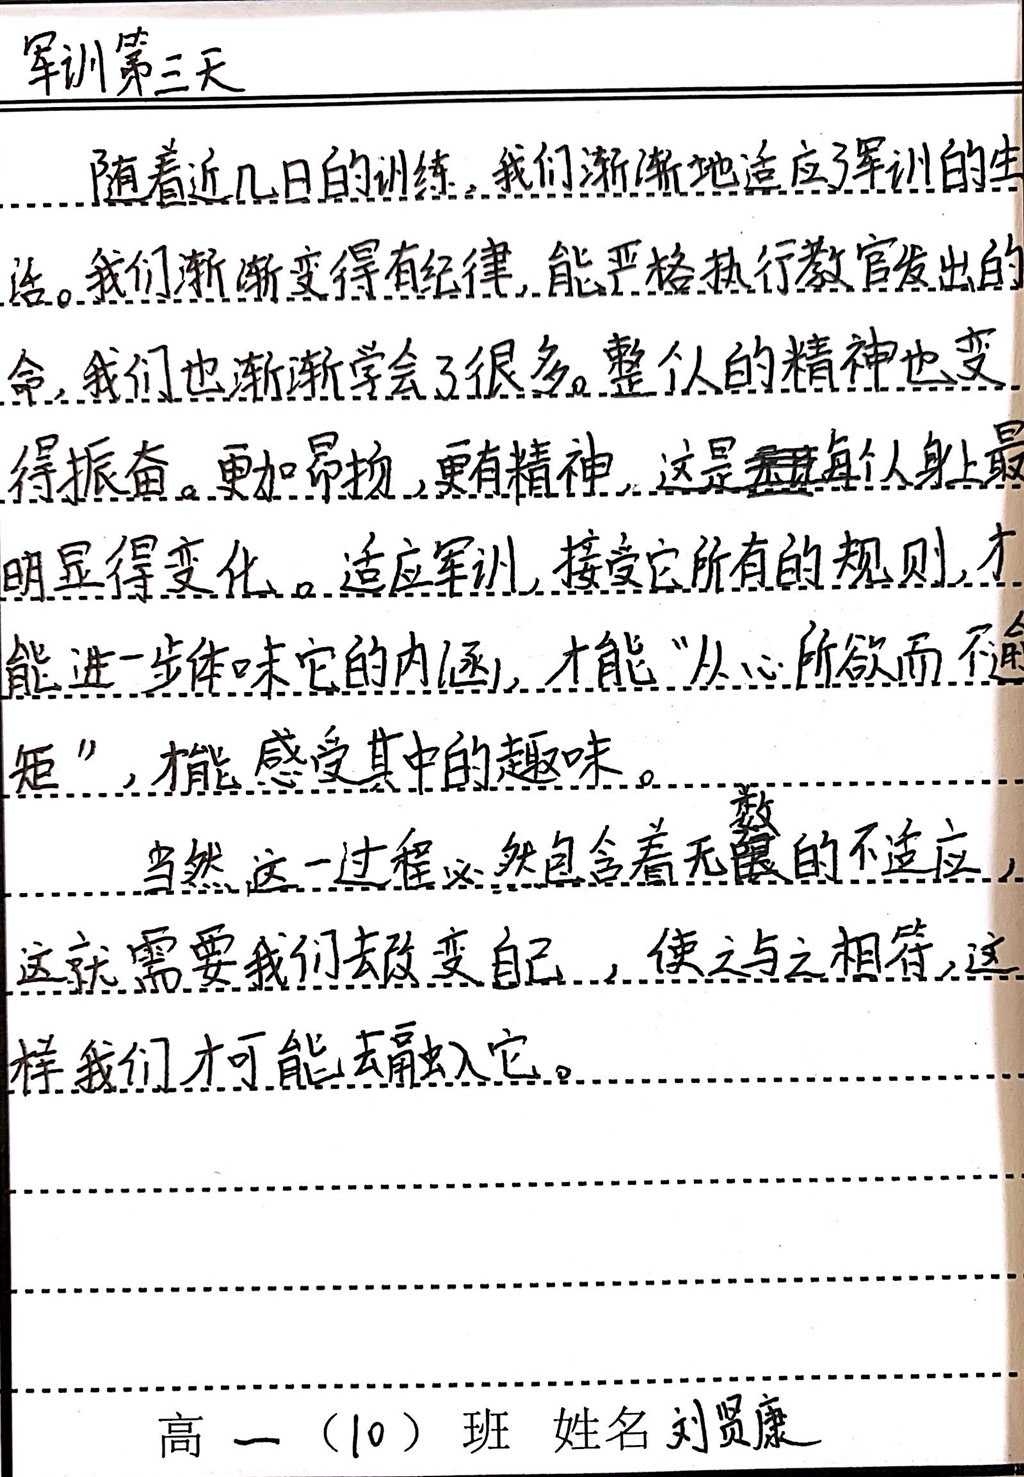 军训第三天
随着近几日的训练，我们渐渐地适应了军训的生
活。我们渐渐变得有纪律，能严格执行教官发出的
命，我们也渐渐学会了很多。整个人的精神也变
得振奋。更加昂扬，更有精神，这是每个人身上最
明显得变化。适应军训，接受它所有的规则，才
能进一步体味它的内涵，才能“从心所欲而不逾
矩”，才能感受其中的趣味。
当然这一过程必然包含着无数的不适应，
这就需要我们去改变自己，使之与之相符，这
样我们才可能去融入它。
高一（10）班 姓名刘贤康